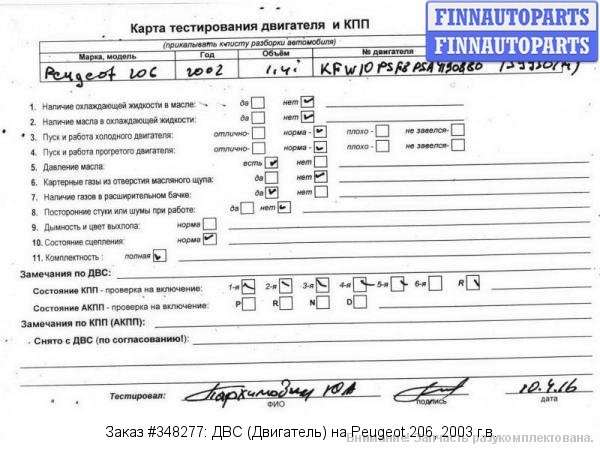 Карта тестирования двигателя и КПП
FINNAUTOPARTS
JAPANAUTOPARTS
(прикалывать к листу разборки автомобиля)
Марка, модель Год Объём № двигателя
Peugeot 206 2002 1,4i KFW10FSF8PSA
1. Наличие охлаждающей жидкости в масле: да нет
2. Наличие масла в охлаждающей жидкости: да нет
3. Пуск и работа холодного двигателя: отлично- норма - плохо - не завелся-
4. Пуск и работа прогретого двигателя: отлично- норма - плохо - не завелся-
5. Давление масла: есть нет
6. Картерные газы из отверстия масляного щупа: да нет
7. Наличие газов в расширительном бачке: да нет
8. Посторонние стуки или шумы при работе: да нет
9. Дымность и цвет выхлопа: норма
10. Состояние сцепления: норма
11. Комплектность : полная
Замечания по ДВС:
Состояние КПП - проверка на включение: 1-я 2-я 3-я 4-я 5-я 6-я R
Состояние АКПП - проверка на включение: P R N D
Замечания по КПП (АКПП):
Снято с ДВС (по согласованию!):
Тестировал: Пархимович Ю А 10.4.16
ФИО подпись дата
Заказ #348277: ДВС (Двигатель) на Peugeot 206, 2003 г.в.
Внимание! Запчасть разукомплектована.